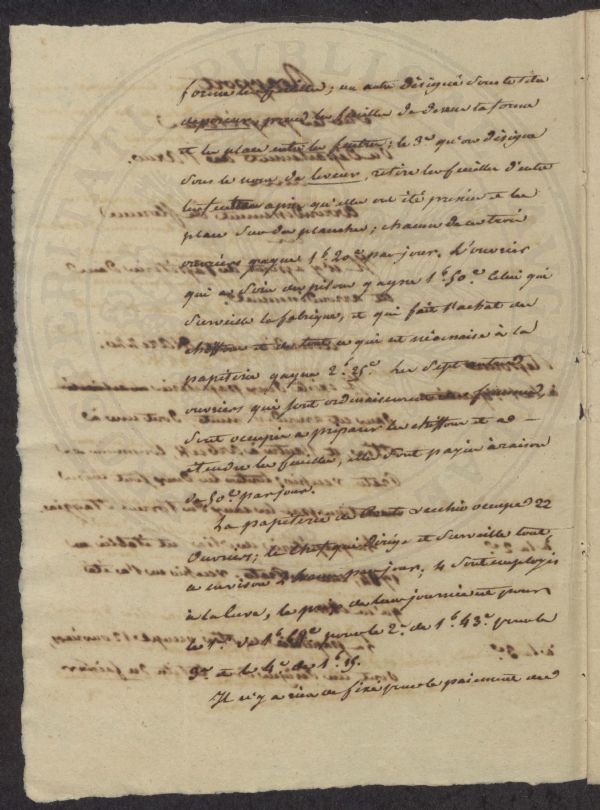 forme la feuille; un autre désigné sous le titre
de poseur prend la feuille de dessus la forme
et la place entre les feutres; le 3e qu'on désigne
sous le nom de leveur, retire les feuilles d'entre
les feutres après qu'elles ont été pressées et les
place sur des planches; chacun de ces trois
ouvriers gagne 1f. 20c. par jour. L'ouvrier
qui a soin des pilons gagne 1f. 50c. Celui qui
surveille la fabrique, et qui fait l'achat des
chiffons et de tout ce qui est nécessaire à la
papeterie gagne 2f. 25c. Les sept autres
ouvriers qui sont ordinairement des femmes
sont occupées à préparer les chiffons et à
étendre les feuilles, elles sont payées à raison
de 50c. par jour.
La papeterie de Ponte Vecchio occupe 22
ouvriers; le chef qui dirige et surveille tout
a environ par jour; 4 sont employés
à la cuve, le prix de leur journée est pour
le 1er de 1f. pour le 2e. de 1f. 43c. pour le
3e et le 4e de 1f. 15.
Il n'y a rien de fixé pour le paiement des